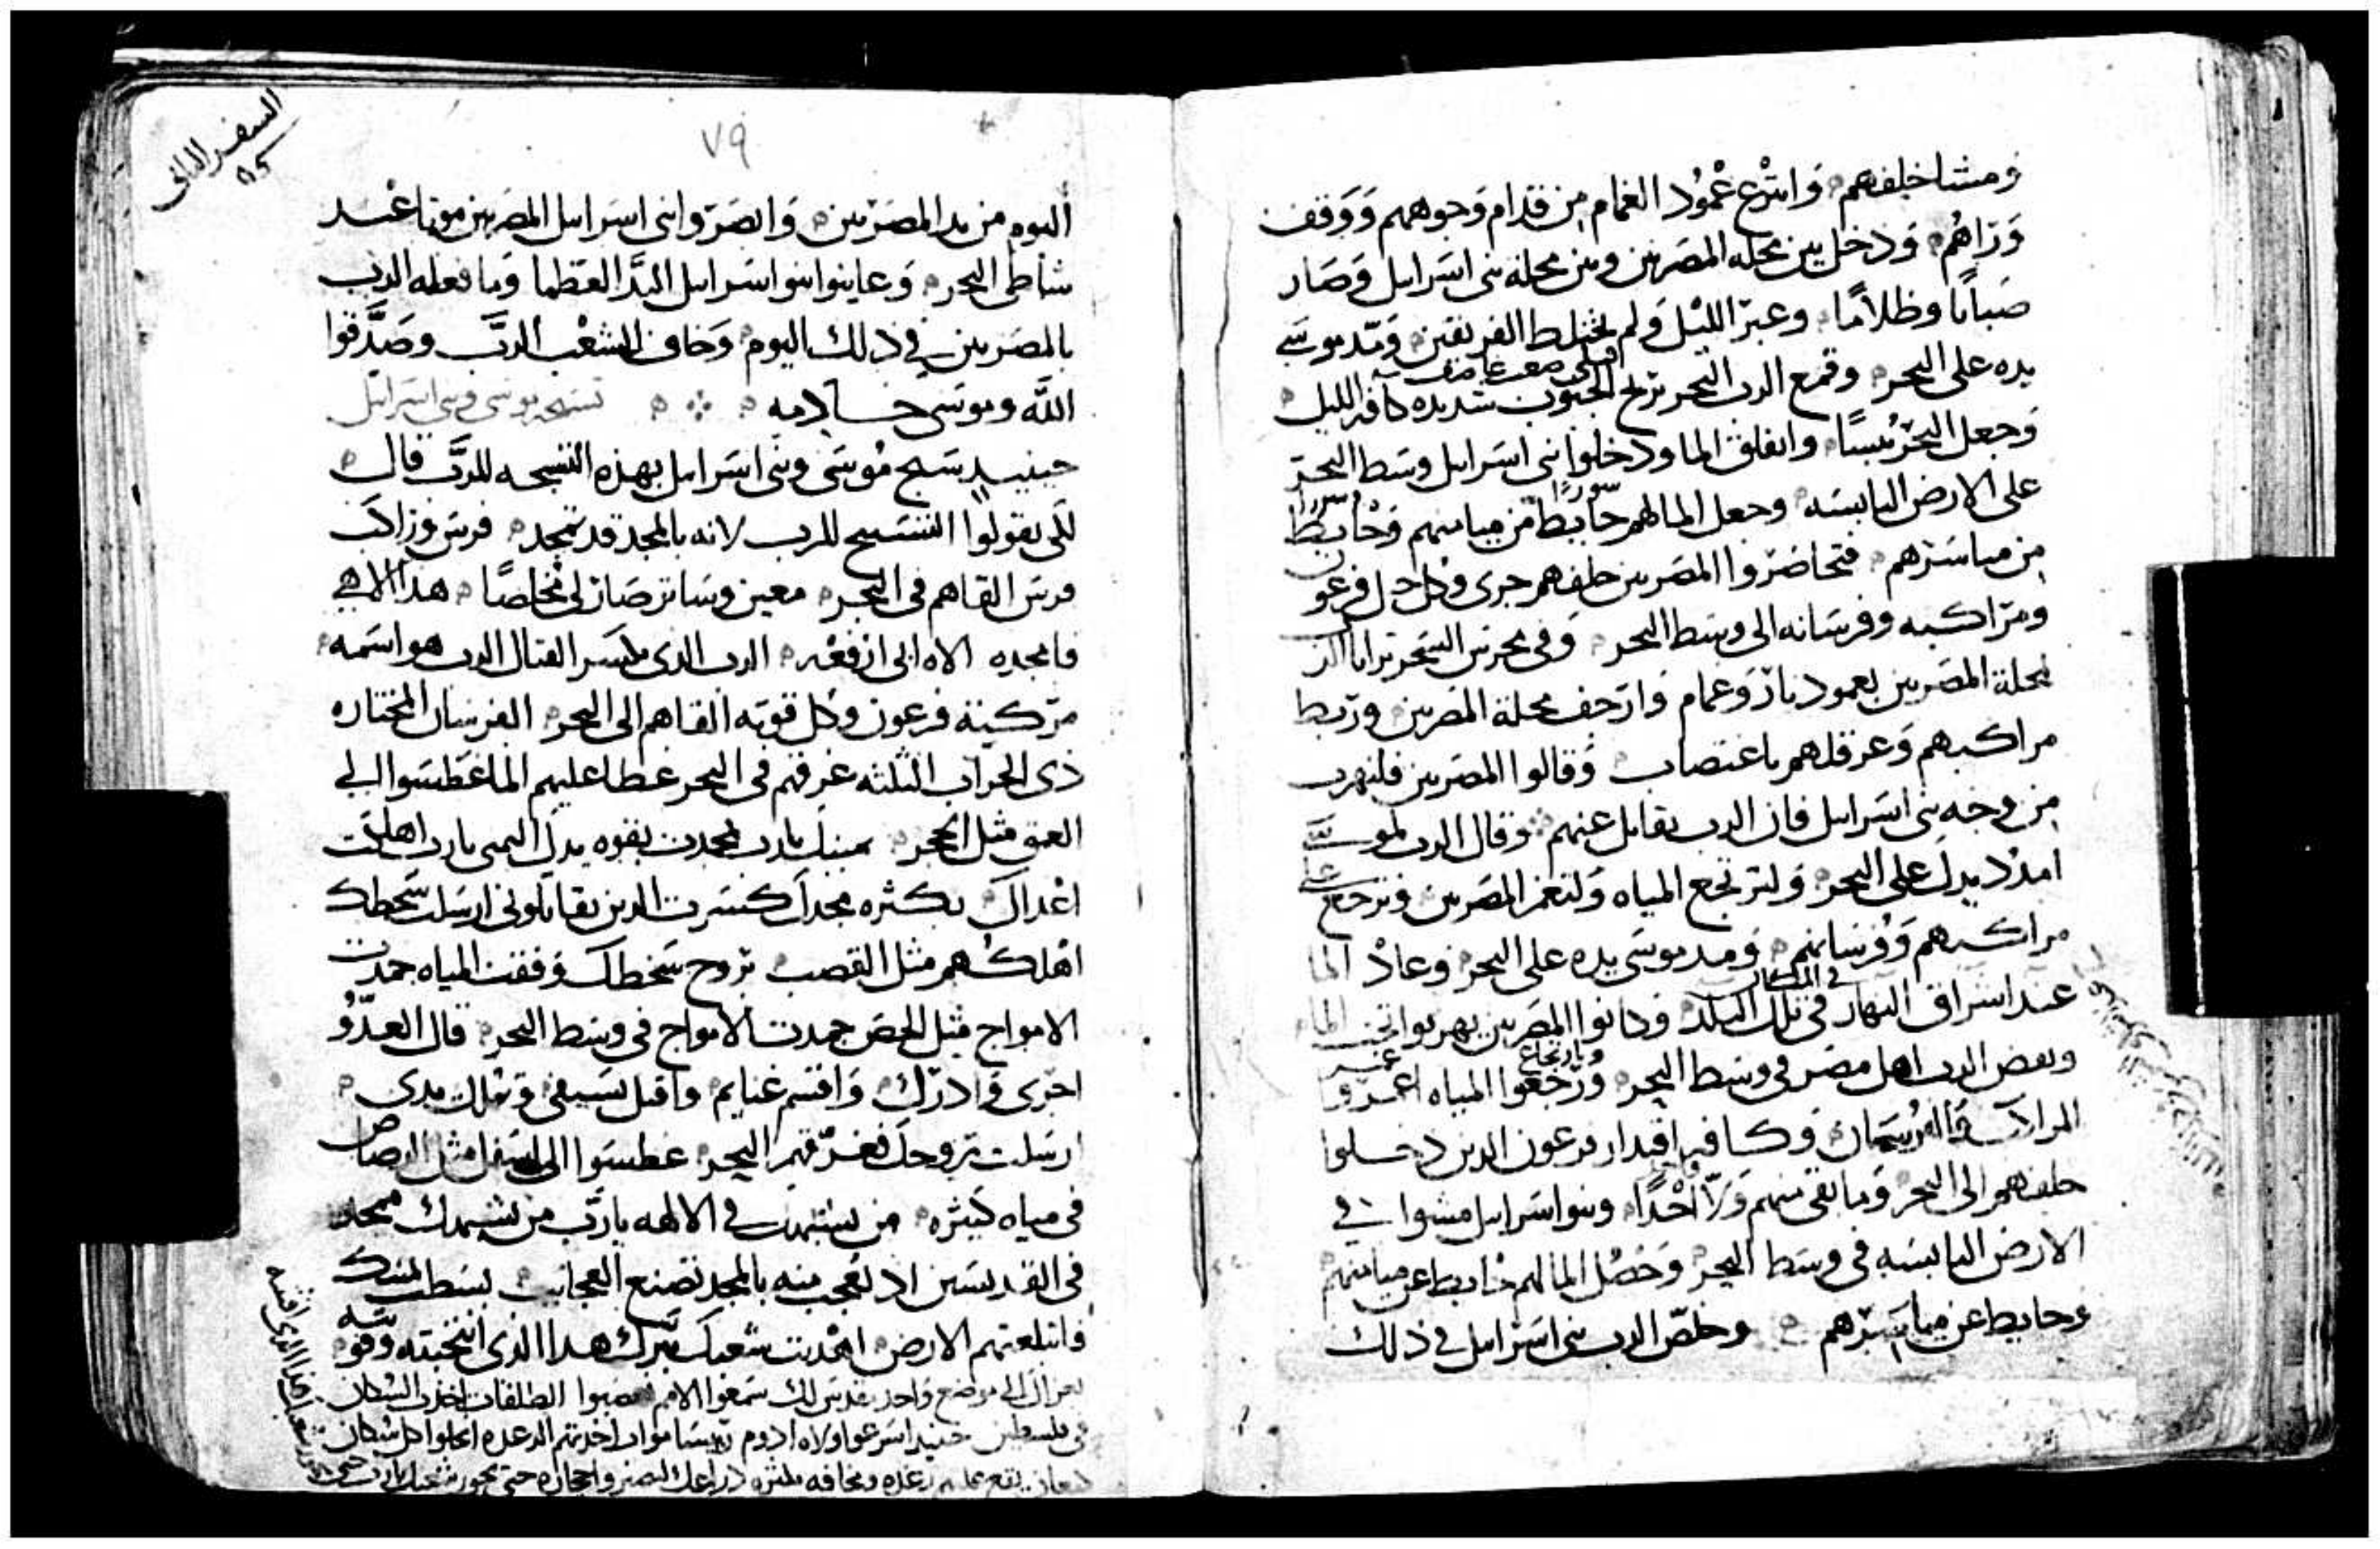 ومشا خلفهم وانتزع عمود الغمام من قدام وجوههم ووقف
وراهم ودخل بين محلة المصريين وبين محلة بني اسرايل وصار
ضبابا وظلاما وعبر الليل ولم يختلط الفريقين ومد موسى
يده على البحر وقمع الرب البحر بريح الجنوب شديده كافة الليل
وجعل البحر يبسا وانفلق الما ودخلوا بني اسرايل وسط البحر
على الارض اليابسه وجعل الما لهم حايط من ميامنهم وحايط
سورا سورا
من مياسرهم فتحاضروا المصريين خلفهم جرى وكل خيل فرعون
ومراكبه وفرسانه الى وسط البحر وفي محرس السحر ترايا الرب
لمحلة المصريين بعمود نار وغمام وارجف محلة المصريين وربط
مراكبهم وعرقلهم باغتصاب وقالوا المصريين فلنهرب
من وجه بني اسرايل فان الرب يقاتل عنهم وقال الرب لموسى
امدد يدك على البحر ولترتجع المياه ولتغمر المصريين وترجع على
مراكبهم وفرسانهم ومد موسى يده على البحر وعاد الما
في المكان
عند اشراق النهار في تلك البلد وكانوا المصريين يهربوا تحت الما
ونفض الرب اهل مصر في وسط البحر ورجعوا المياه غمروا
المراكب والفرسان وكافة اقتدار فرعون الدين دخلوا
خلفهم الى البحر وما بقى منهم ولا احدا وبنو اسرايل مشوا في
الارض اليابسه في وسط البحر وحصل الما لهم حايط عن ميامنهم
وحايط عن مياسرهم وخلص الرب بني اسرايل في ذلك
السفر الثاني
٧٩
اليوم من يد المصريين وابصروا بني اسرايل المصريين موتا عند
شاطى البحر وعاينوا بنوا اسرايل اليد العظما وما فعله الرب
بالمصريين في ذلك اليوم وخاف الشعب الرب وصدقوا
الله وموسى خادمه تسبحة موسى وبني اسرايل
حينيد سبح موسى وبني اسرايل بهذه التسبحه للرب قال
لكي يقولوا التسبيح للرب لانه بالمجد قد تمجد فرس وراكب
فرس القاهم في البحر معين وساتر صار لي مخلصا هدا الاهي
فامجده الاه ابي ارفعه الرب الدي يكسر القتال الرب هو اسمه
مركبة فرعون وكل قوته القاهم الى البحر الفرسان المختاره
ذى الحراب الثلثه غرقهم في البحر غطا عليهم الما غطسوا الى
العمق مثل الحجر يمينك يارب تمجدت بقوه يدك اليمى يارب اهلكت
اعداك بكثره مجدك كسرت الدين يقاتلوني ارسلت سخطك
اهلكهم مثل القصب بروح سخطك وقفت المياه جمدت
الامواج مثل الحص جمدت الامواج في وسط البحر قال العدو
اجرى وادرك واقتسم غنايم واقتل بسيفي وتملك يدى
ارسلت بروحك فغرقهم البحر غطسوا الى اسفل مثل الرصاص
في مياه كثيره من يشبهك في الالهه يارب من يشبهك ممجد
في القديسين اد تعجب منه بالمجد تصنع العجايب بسطت يمينك
فابتلعتهم الارض اهديت شعبك ببرك هدا الدى انتخبته وقوته
موضع واحد قدس لك سمعوا الامم الطلقات اخذت السكان
في فلسطين حينيد اسرعوا ولاه ادوم روسا مواب اخدتهم الرعده انحلوا كل سكان
كنعان يقع عليهم رعده ومخافه بكثرة دراعك ليصيروا حجاره حتى يجوز شعبك يارب حتى